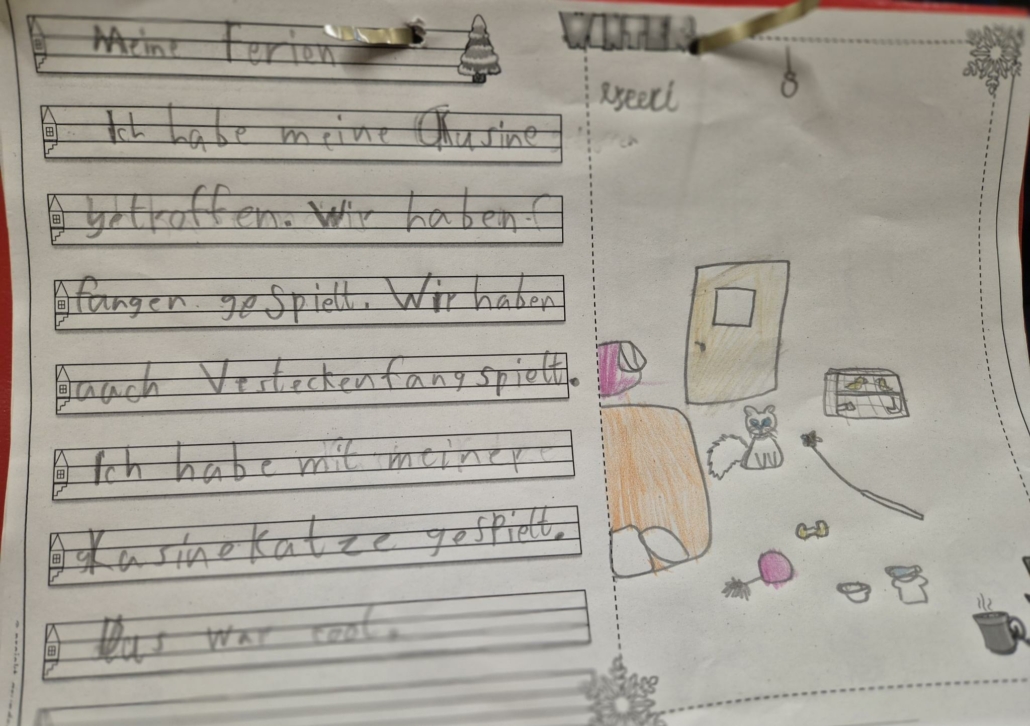 Meine Ferien
WINTER
Ich habe meine Kusine
getroffen. Wir haben
fangen gespielt. Wir haben
auch Versteckenfang spielt.
Ich habe mit meiner
Kasinekatze gespielt.
Das war cool.